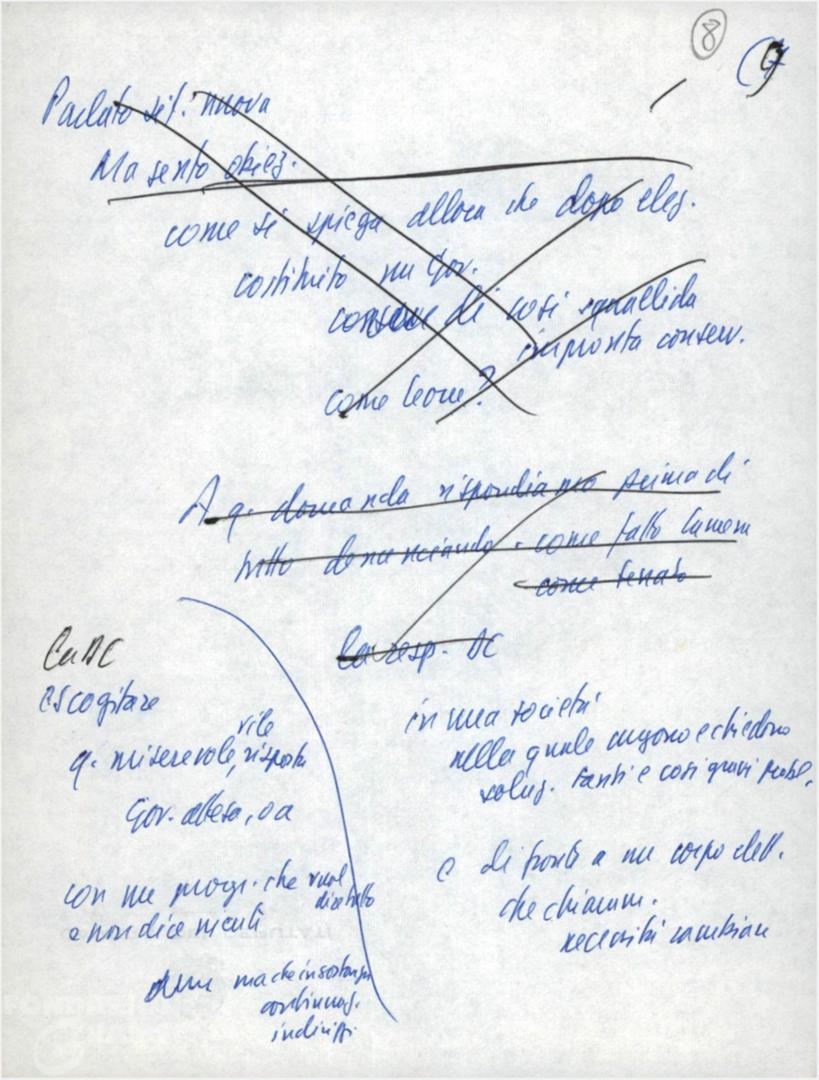 8
Parlato sit. nuova
Ma sento obiez.
come si spiega allora che dopo elez.
costituito un Gov.
di così squallida
impronta conserv.
come Leone?
A q. domanda rispondiamo prima di
tutto denunciando - come fatto Camera
come Senato
La resp. DC
La DC
escogitare
q. miserevole, vile risposta
Gov. attesa, o a
con un progr. che vuol dire tutto
e non dice
ma che in sostanza
continuaz.
indirizzi
in una società
nella quale urgono e chiedono
soluz. tanti e così gravi probl.
e di fronte a un corpo elett.
che chiaram.
necessità cambiare